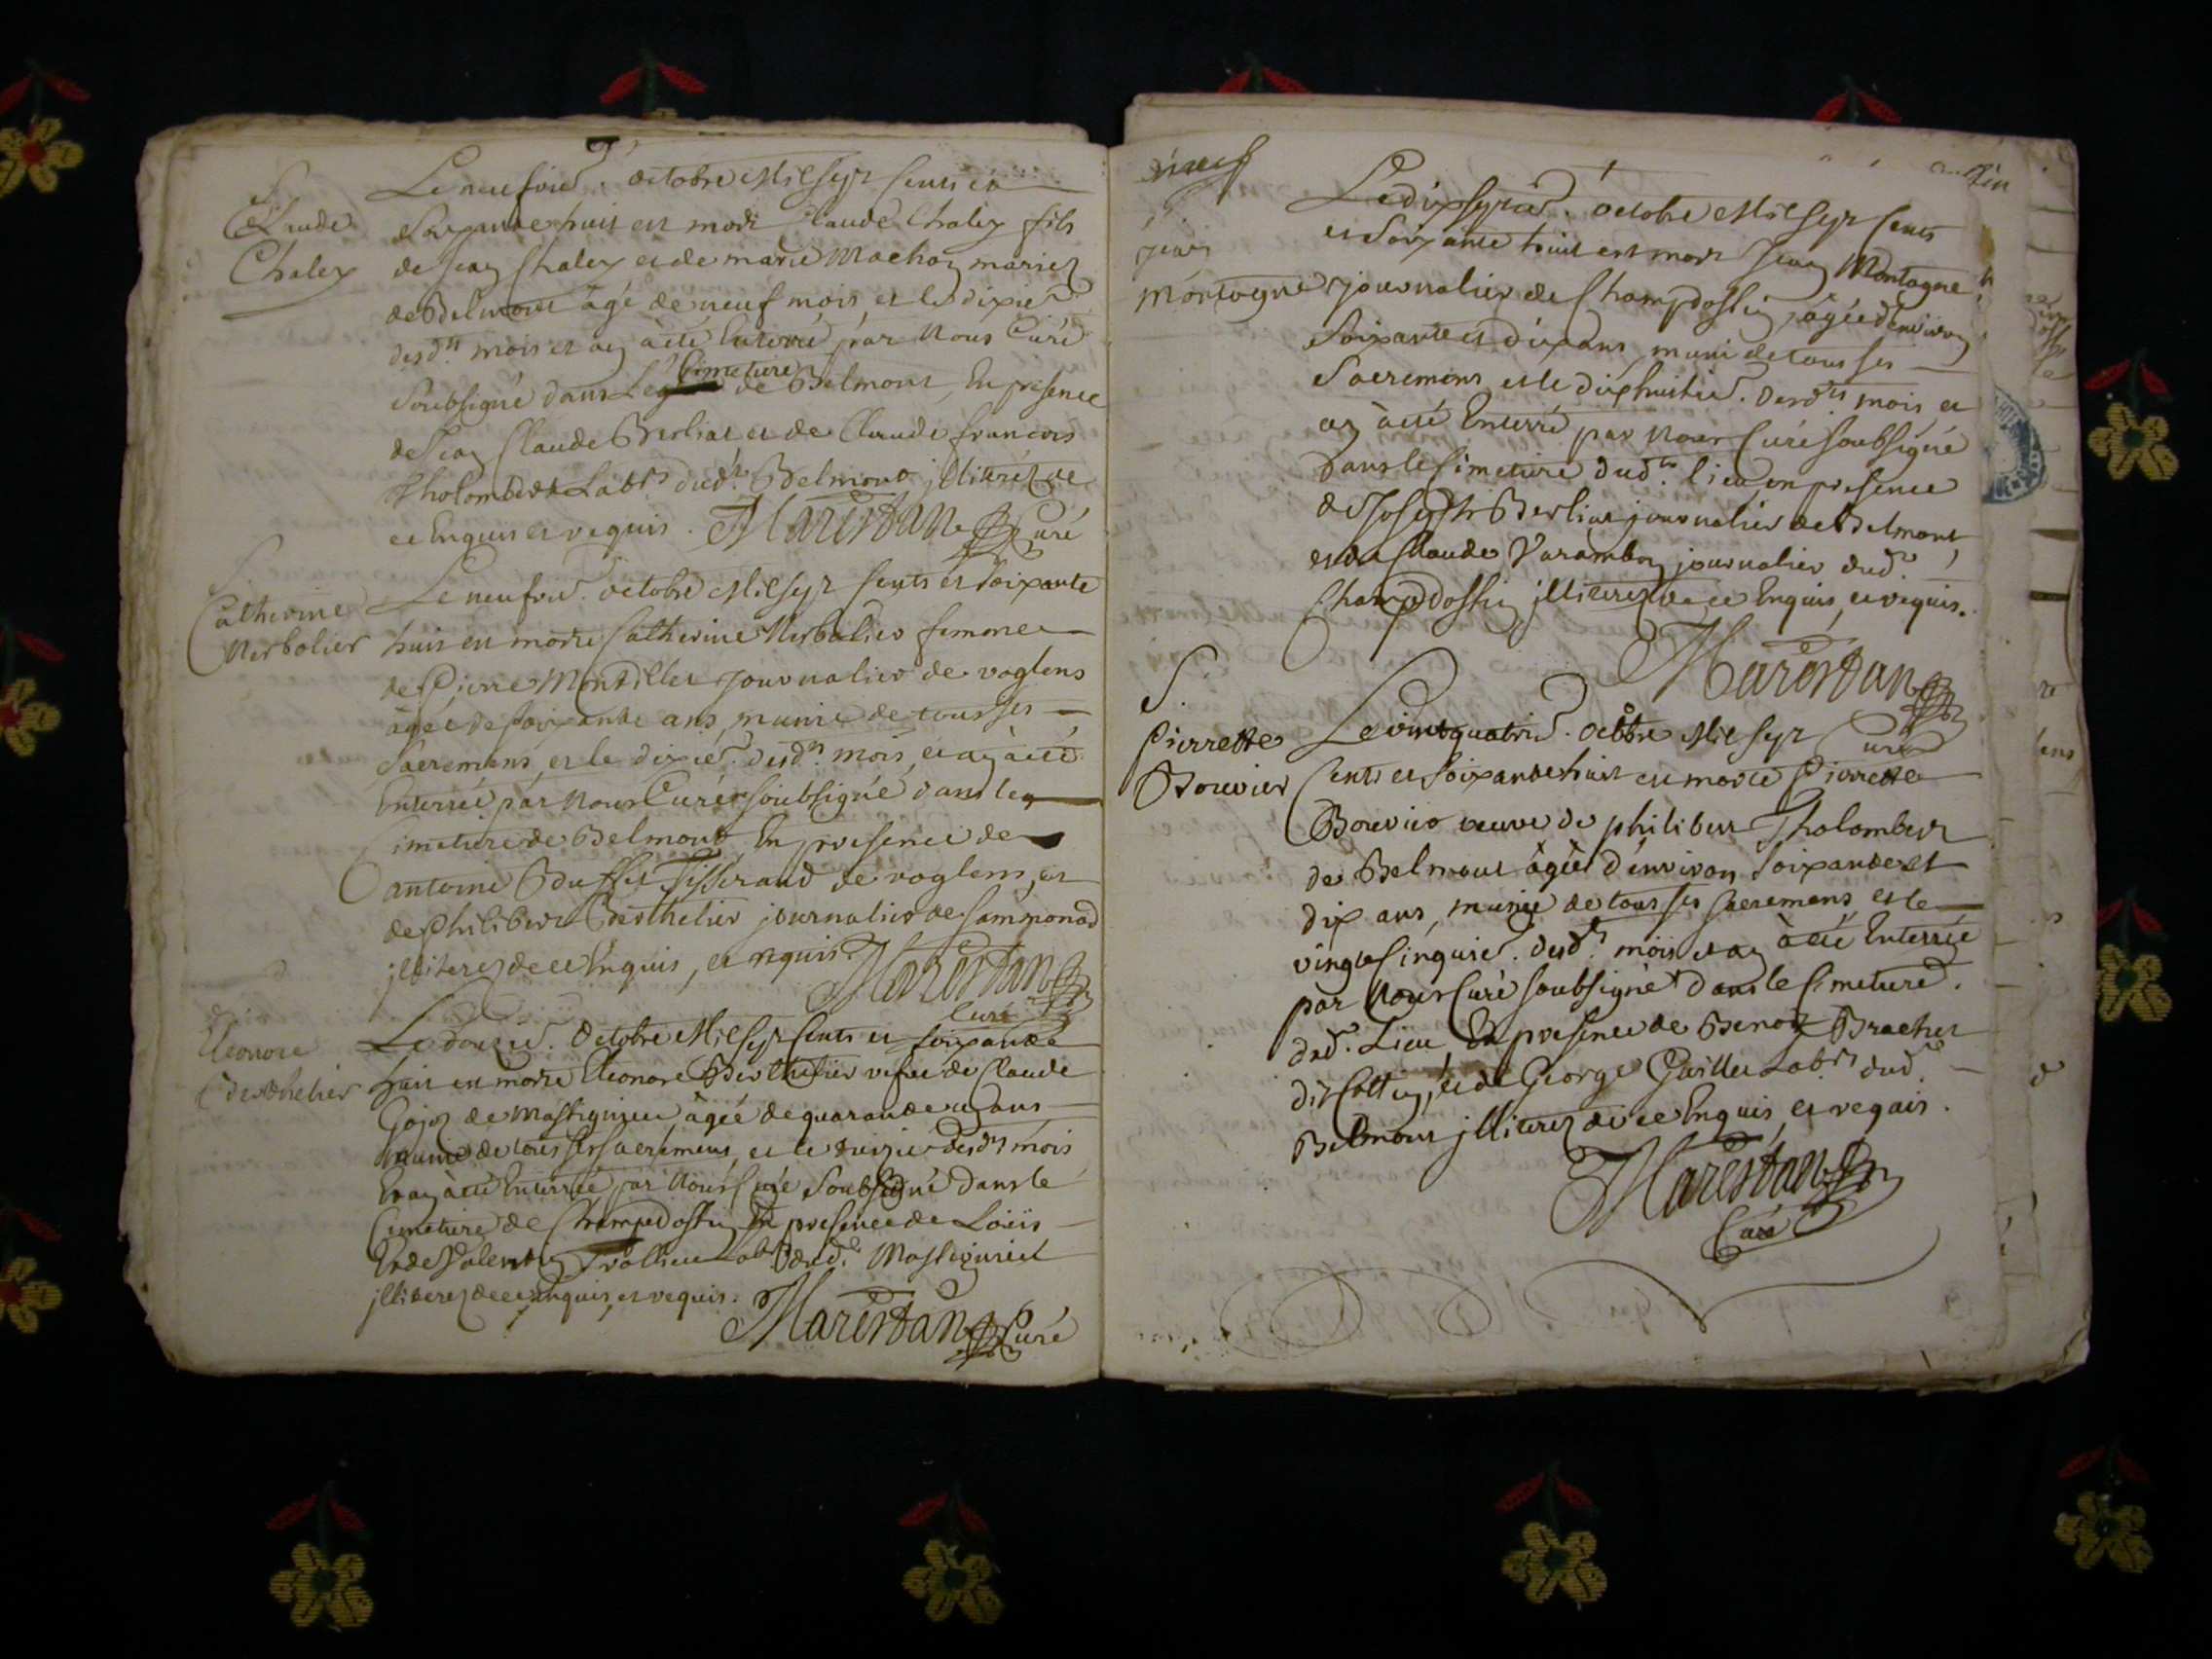 S.
Claude
Chaley
Le neufvie. octobre Mil sept cents et
Soixante huit est mort Claude Chaley fils
de Jean Chaley et de marie Machon mariez
de Belmont âgé de neuf mois, et le dixie
desd.ts mois et an à été Enterré par Nous Curé
Soubsigné dans Le Cimetiere de Belmont, En presence
de Jean Claude Berliat et de Claude francois
Tholombert Labrs dud.t Belmont illiterez de
ce Enquis et requis. Marestan Curé
S.
Catherine
Verbolier
Le neufvie. octobre Mil sept cents et soixante
huit est morte Catherine Verbolier femme
de Pierre Montillet journalier de voglens
âgée de soixante ans, munie de tous ses
Sacremens, et le dixie. desd.ts mois, et an à été
Enterrée par Nous Curé soubsigné dans le
Cimetiere de Belmont En presence de
antoine Buffet Tisserand de voglens, et
de Philibert Berthelier journalier de
illiterez de ce Enquis, et requis. Marestan
Curé
Eleonore
Berthelier
Le douzie. Octobre Mil sept cents et soixante
huit est morte Eleonore Berthelier vefue de Claude
Gojoz de Massignieu âgée de quarante ans
Munie de tous ses sacremens, et le desd.ts mois
Et an à été Enterrée par Nous Curé Soubsigné dans le
Cimetiere de Champdossin En presence de Loüis
Et de Valentin Trollieu Labrs dud.t Massignieu
illiterez de ce enquis, et requis. Marestan Curé
neuf
S.
Jean
Montagne
Le dix septie. Octobre Mil sept Cents
et Soixante huit est mort Jean Montagne
journalier de Champdossin, âgé d'environ
Soixante et dix ans, muni de tous ses
Sacremens, et le dix huitie. desd.ts mois, et
an à été Enterré par Nous Curé soubsigné
dans le Cimetiere dud.t lieu, en presence
de Joseph Berliat journalier de Belmont,
et de Claude Varambon journalier dud.t
Champdossin illiterez de ce Enquis, et requis.
Marestan
Curé
S.
Pierrette
Bouvier
Le vint quatrie. octbre Mil sept
Cents et soixante huit est morte Pierrette
Bouvier veuve de philibert Tholombert
de Belmont âgée d'environ Soixante et
dix ans, munie de tous ses sacremens et le
vingt Cinquie. desd.ts mois et an à été Enterrée
par Nous Curé soubsigné dans le Cimetiere.
dud.t Lieu En presence de Benoit Brachet
dit Cottin, et de George Guillet Labrs dud.t
Belmont illiterez de ce Enquis, et requis.
Marestan
Curé